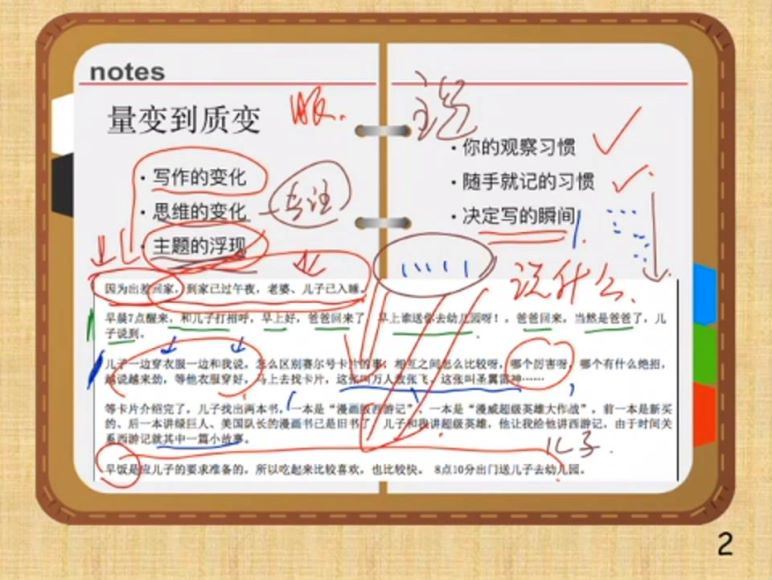 notes
量变到质变
眼.
说
• 写作的变化
• 思维的变化
专注
• 主题的浮现
• 你的观察习惯
• 随手就记的习惯
• 决定写的瞬间
说什么
因为出差回家，到家已过午夜，老婆、儿子已入睡。
早晨7点醒来，和儿子打招呼，早上好，爸爸回来了，早上谁送你去幼儿园呀！，爸爸回来，当然是爸爸了，儿
子说到。
儿子一边穿衣服一边和我说，怎么区别赛尔号卡片的事，相互之间怎么比较呀，哪个厉害呀，哪个有什么绝招，
越说越来劲，等他衣服穿好，马上去找卡片，这张叫万人敌张飞，这张叫圣翼雷神……
等卡片介绍完了，儿子找出两本书，一本是“漫画版西游记”，一本是“漫威超级英雄大作战”，前一本是新买
的、后一本讲绿巨人、美国队长的漫画书已是旧书了，儿子和我讲超级英雄，他让我给他讲西游记，由于时间关
系西游记就其中一篇小故事。
儿子
早饭是应儿子的要求准备的，所以吃起来比较喜欢，也比较快， 8点10分出门送儿子去幼儿园。
2